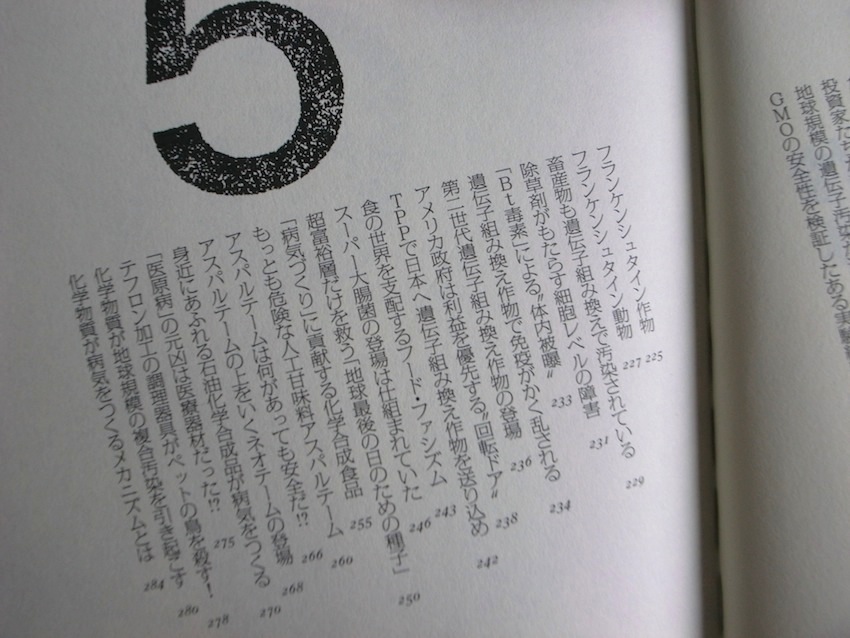 投資家たち
地球規模の遺伝子汚染
GMOの安全性を検証したある実験
5
フランケンシュタイン作物 225
フランケンシュタイン動物 227
畜産物も遺伝子組み換えで汚染されている 229
除草剤がもたらす細胞レベルの障害 231
「Bt毒素」による〝体内被曝〟 233
遺伝子組み換え作物で免疫がかく乱される 234
第二世代遺伝子組み換え作物の登場 236
アメリカ政府は利益を優先する〝回転ドア〟 238
TPPで日本へ遺伝子組み換え作物を送り込め 242
食の世界を支配するフード・ファシズム 243
スーパー大腸菌の登場は仕組まれていた 246
超富裕層だけを救う「地球最後の日のための種子」 250
「病気づくり」に貢献する化学合成食品 255
もっとも危険な人工甘味料アスパルテーム 260
アスパルテームは何があっても安全だ!? 266
アスパルテームの上をいくネオテームの登場 268
身近にあふれる石油化学合成品が病気をつくる 270
「医原病」の元凶は医療器材だった!? 275
テフロン加工の調理器具がペットの鳥を殺す! 278
化学物質が地球規模の複合汚染を引き起こす 280
化学物質が病気をつくるメカニズムとは 284